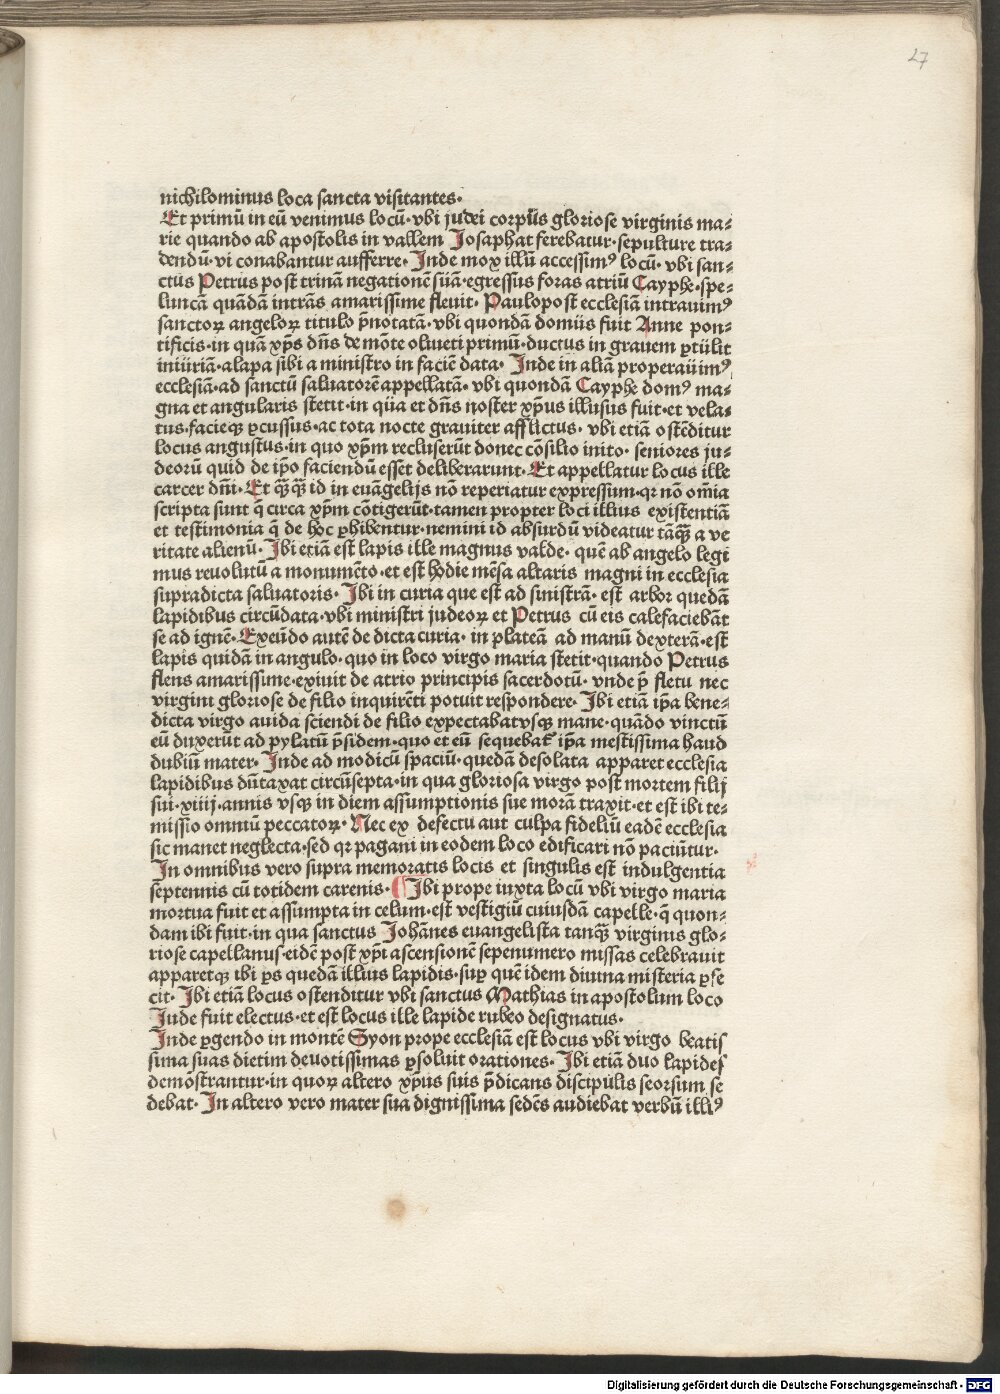 27
nichilominus loca sancta visitantes·
Et primū in eū venimus locū·vbi judei corpus gloriose virginis ma⸗
rie quando ab apostolis in vallem Josaphat ferebatur·sepulture tra⸗
dendū·vi conabantur aufferre· Inde mox illū accessimꝰ locū·vbi san⸗
ctus Petrus post trinā negationē suā·egressus foras atriū Cayphe·spe⸗
luncā quādā intrās amarissime fleuit· Paulopost ecclesiā intrauimꝰ
sanctoꝝ angeloꝝ titulo p̄notatā·vbi quondā domus fuit Anne pon⸗
tificis·in quā xp̄s dn̄s de mōte oliueti primū·ductus in grauem ꝑtulit
iniuriā·alapa sibi a ministro in faciē data· Inde in aliā properauimꝰ
ecclesiā·ad sanctū saluatorē appellatā·vbi quondā Cayphe domꝰ ma⸗
gna et angularis stetit·in qua et dn̄s noster xp̄us illusus fuit·et vela⸗
tus·facieqꝫ ꝑcussus·ac tota nocte grauiter afflictus· vbi etiā ostēditur
locus angustus·in quo xp̄m recluserūt donec cōsilio inito· seniores ju⸗
deorū quid de ip̄o faciendū esset deliberarunt· Et appellatur locus ille
carcer dn̄i· Et qꝫ̄qꝫ̄ id in euāgelijs nō reperiatur expressum·qꝛ nō om̄ia
scripta sunt q̄ circa xp̄m cōtigerūt·tamen propter loci illius existentiā
et testimonia q̄ de hoc ꝑhibentur·nemini id absurdū videatur tāqꝫ̄ a ve
ritate alienū· Ibi etiā est lapis ille magnus valde· quē ab angelo legi
mus reuolutū a monumēto·et est hodie mēsa altaris magni in ecclesia
supradicta saluatoris· Ibi in curia que est ad sinistrā· est arbor quedā
lapidibus circūdata·vbi ministri judeoꝝ et Petrus cū eis calefaciebāt
se ad ignē· Exeūdo autē de dicta curia· in plateā ad manū dexterā·est
lapis quidā in angulo·quo in loco virgo maria stetit·quando Petrus
flens amarissime·exiuit de atrio principis sacerdotū· vnde p̄ fletu nec
virgini gloriose de filio inquirēti potuit respondere· Ibi etiā ip̄a bene⸗
dicta virgo auida sciendi de filio expectabat vsqꝫ mane·quādo vinctū
eū duxerūt ad pylatū p̄sidem·quo et eū sequebat᷑ ip̄a mestissima haud
dubiū mater· Inde ad modicū spaciū·quedā desolata apparet ecclesia
lapidibus dūtaxat circūsepta·in qua gloriosa virgo post mortem filij
sui·xiiij·annis vsqꝫ in diem assumptionis sue morā traxit·et est ibi re⸗
missio omniū peccatoꝝ· Nec ex defectu aut culpa fideliū eadē ecclesia
sic manet neglecta·sed qꝛ pagani in eodem loco edificari nō paciūtur·
In omnibus vero supra memoratis locis et singulis est indulgentia
septennis cū totidem carenis· ¶ Ibi prope iuxta locū vbi virgo maria
mortua fuit et assumpta in celum·est vestigiū cuiusdā capelle·q̄ quon⸗
dam ibi fuit·in qua sanctus Johānes euangelista tanqꝫ̄ virginis glo⸗
riose capellanus·eidē post xp̄i ascensionē sepenumero missas celebrauit
apparetqꝫ ibi ꝑs quedā illius lapidis·suꝑ quē idem diuina misteria ꝑfe
cit· Ibi etiā locus ostenditur vbi sanctus Mathias in apostolum loco
Jude fuit electus·et est locus ille lapide rubeo designatus·
Inde ꝑgendo in montē Syon prope ecclesiā est locus vbi virgo beatis
sima suas dietim deuotissimas ꝑsoluit orationes· Ibi etiā duo lapides
demōstrantur·in quoꝝ altero xp̄us suis p̄dicans discipulis seorsum se
debat· In altero vero mater sua dignissima sedēs audiebat verbū illiꝰ
Digitalisierung gefördert durch die Deutsche Forschungsgemeinschaft - DFG